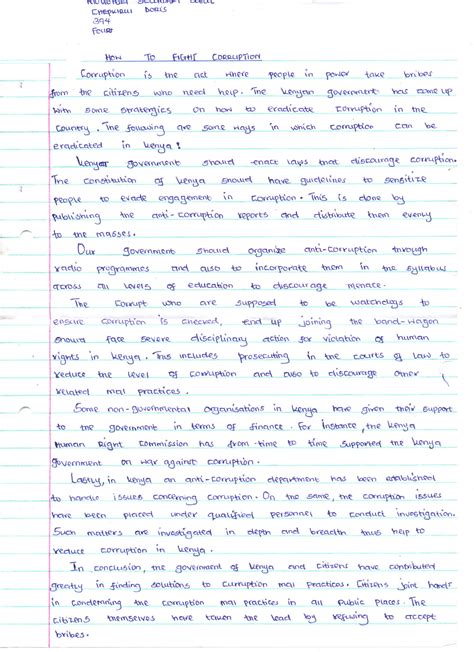 CHEPKURUI DORIS
394
FOUR
HOW TO FIGHT CORRUPTION
Corruption is the act where people in power take bribes
from the citizens who need help. The Kenyan government has come up
with some stratergies on how to eradicate corruption in the
country. The following are some ways in which corruption can be
eradicated in Kenya:
Kenyan government should enact laws that discourage corruption.
The constitution of Kenya should have guidelines to sensitize
people to evade engagement in corruption. This is done by
publishing the anti-corruption reports and distribute them evenly
to the masses.
Our government should organize anti-corruption through
radio programmes and also to incorporate them in the syllabus
across all levels of education to discourage menace.
The corrupt who are supposed to be watchdogs to
ensure corruption is checked, end up joining the band-wagon
should face severe disciplinary action for violation of human
rights in Kenya. This includes prosecuting in the courts of law to
reduce the level of corruption and also to discourage other
related mal practices.
Some non-governmental organisations in Kenya have given their support
to the government in terms of finance. For instance, the Kenya
Human Right Commission has from time to time supported the Kenya
government on war against corruption.
Lastly, in Kenya an anti-corruption department has been established
to handle issues concerning corruption. On the same, the corruption issues
have been placed under qualified personnel to conduct investigation.
Such matters are investigated in depth and breadth thus help to
reduce corruption in Kenya.
In conclusion, the government of Kenya and citizens have contributed
greatly in finding solutions to curruption mal practices. Citizens joine hands
in condemning the corruption mal practices in all public places. The
citizens themselves have taken the lead by refusing to accept
bribes.